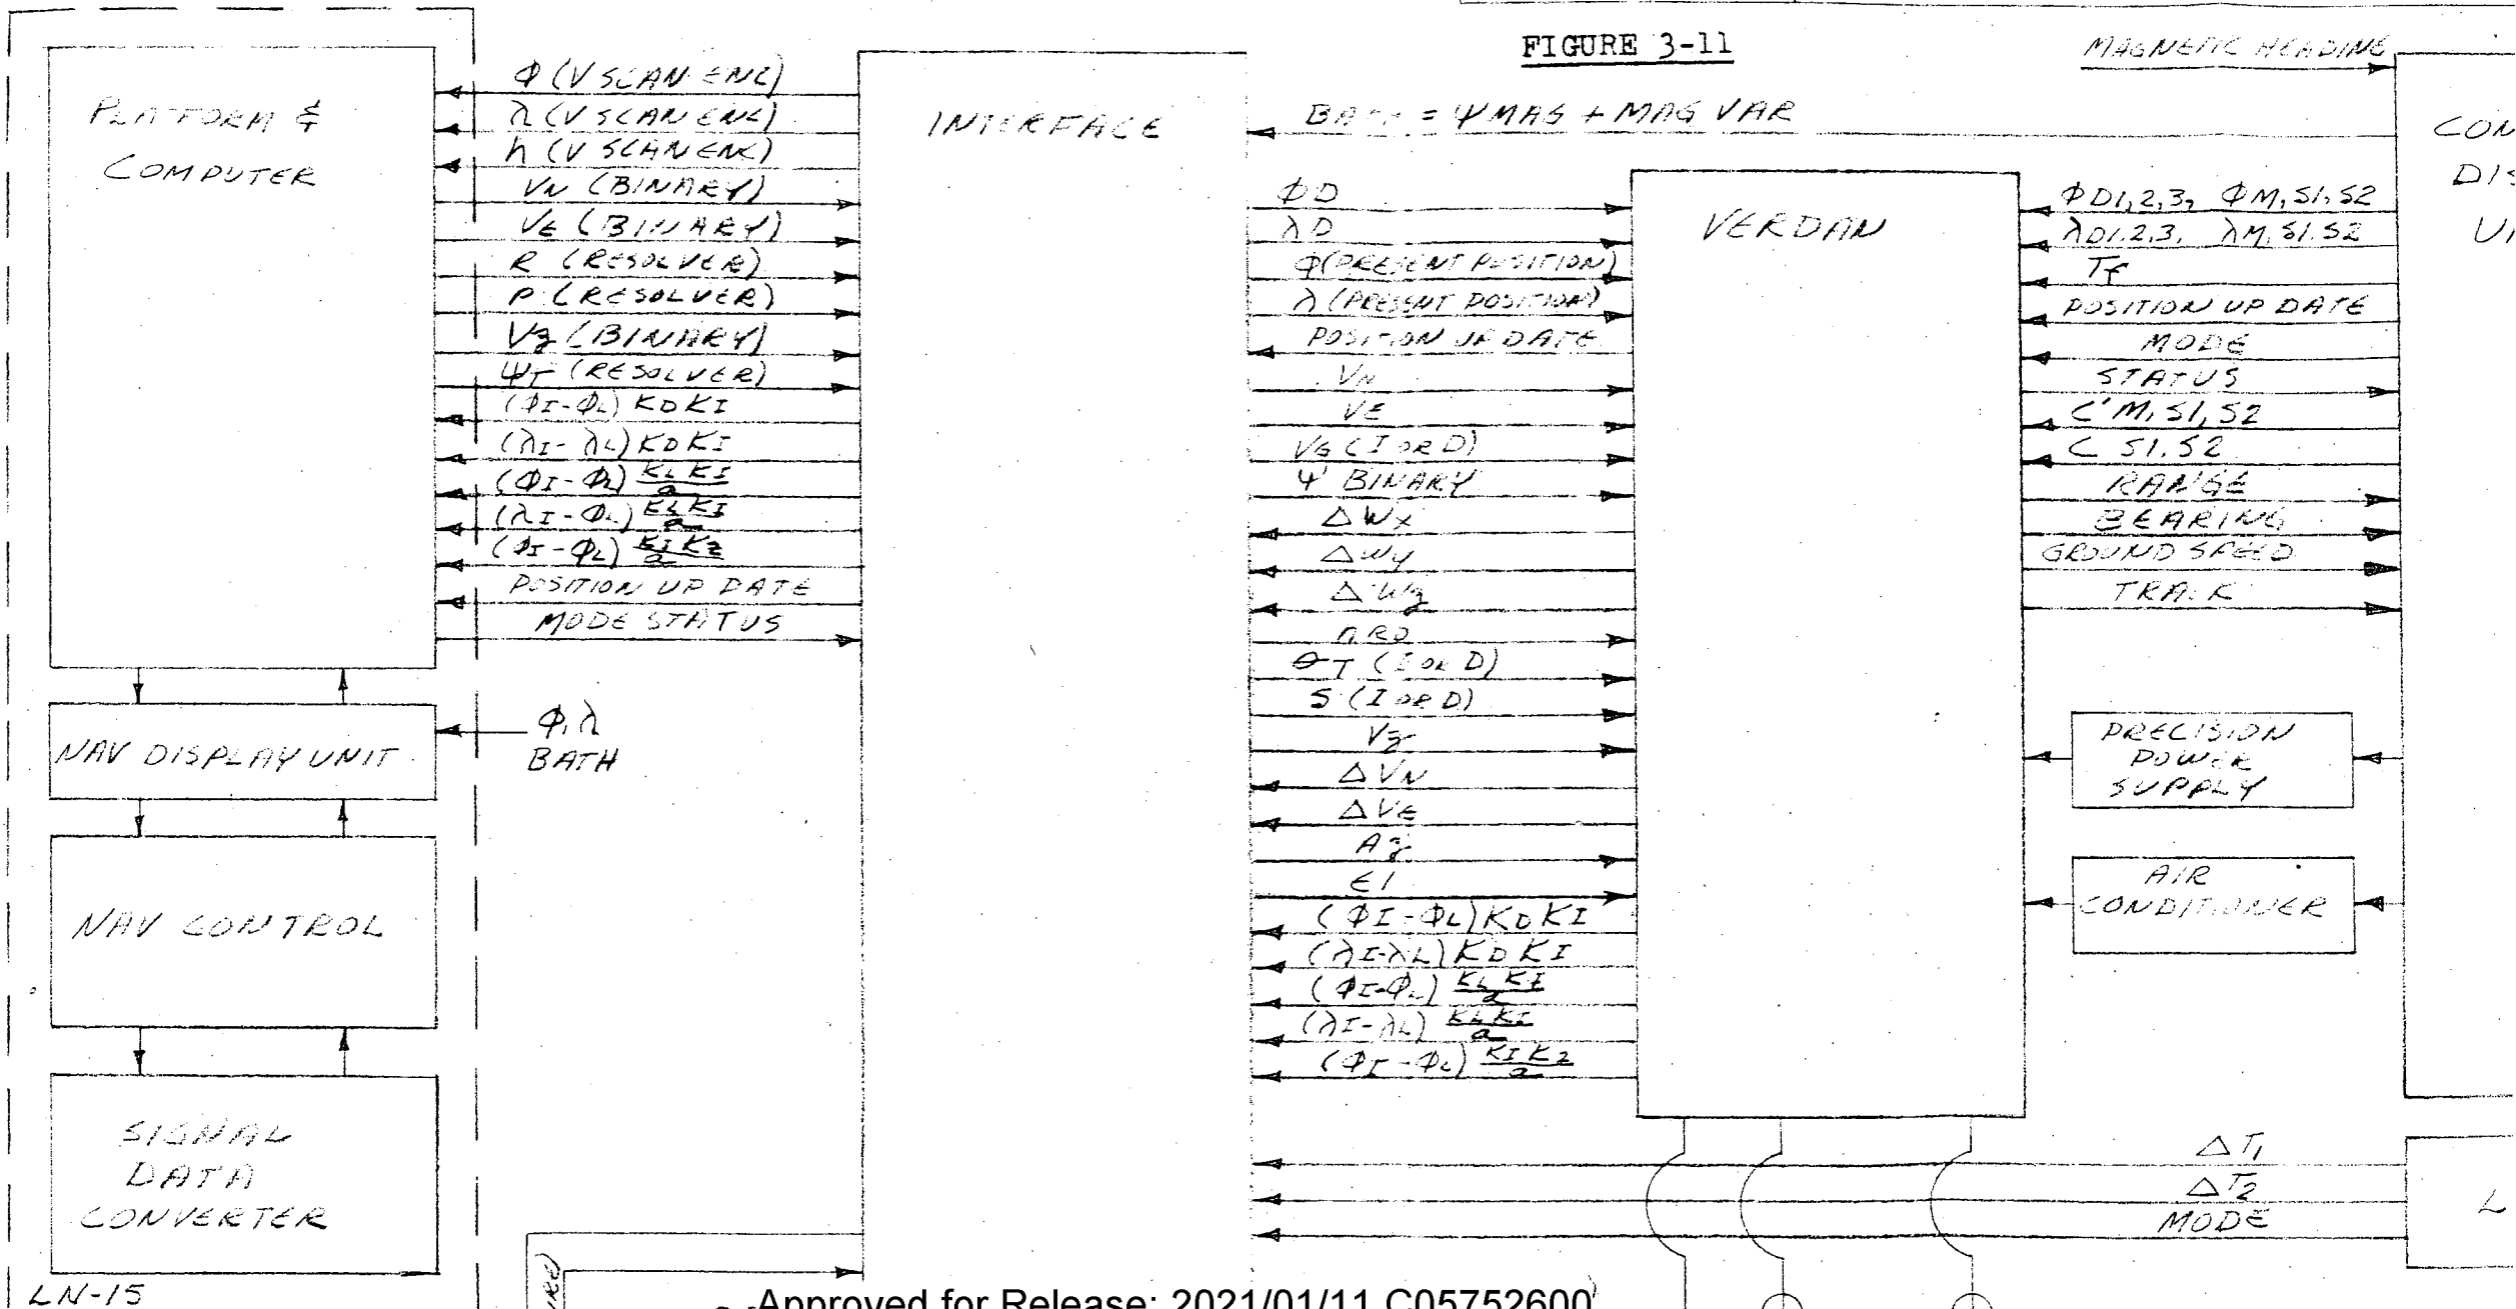 FIGURE 3-11
MAGNETIC HEADING
PLATFORM &
COMPUTER
Φ (V SCAN ENC)
λ (V SCAN ENC)
h (V SCAN ENC)
VN (BINARY)
VE (BINARY)
R (RESOLVER)
P (RESOLVER)
Vz (BINARY)
ΨT (RESOLVER)
(ΦI-ΦL) KDKI
(λI-λL) KDKI
(ΦI-ΦL) KLKI/a
(λI-ΦL) KLKI/a
(ΦI-ΦL) KIK2/a
POSITION UP DATE
MODE STATUS
INTERFACE
BATH = ΨMAG + MAG VAR
ΦD
λD
Φ(PRESENT POSITION)
λ (PRESENT POSITION)
POSITION UP DATE
VN
VE
VG (I OR D)
Ψ BINARY
ΔWX
ΔWY
ΔWz
ΘT (I OR D)
S (I OR D)
Vz
ΔVN
ΔVE
Az
E1
(ΦI-ΦL) KDKI
(λI-λL) KDKI
(ΦI-ΦL) KLKI/a
(λI-λL) KLKI/a
(ΦI-ΦL) KIK2/a
VERDAN
ΦD1,2,3, ΦM,S1,S2
λD1,2,3, λM,S1,S2
Tf
POSITION UP DATE
MODE
STATUS
C'M,S1,S2
C S1,S2
RANGE
BEARING
GROUND SPEED
TRACK
CON
DIS
U
PRECISION
POWER
SUPPLY
AIR
CONDITIONER
NAV DISPLAY UNIT
Φ,λ
BATH
NAV CONTROL
SIGNAL
DATA
CONVERTER
LN-15
ΔT1
ΔT2
MODE
L
Approved for Release: 2021/01/11 C05752600